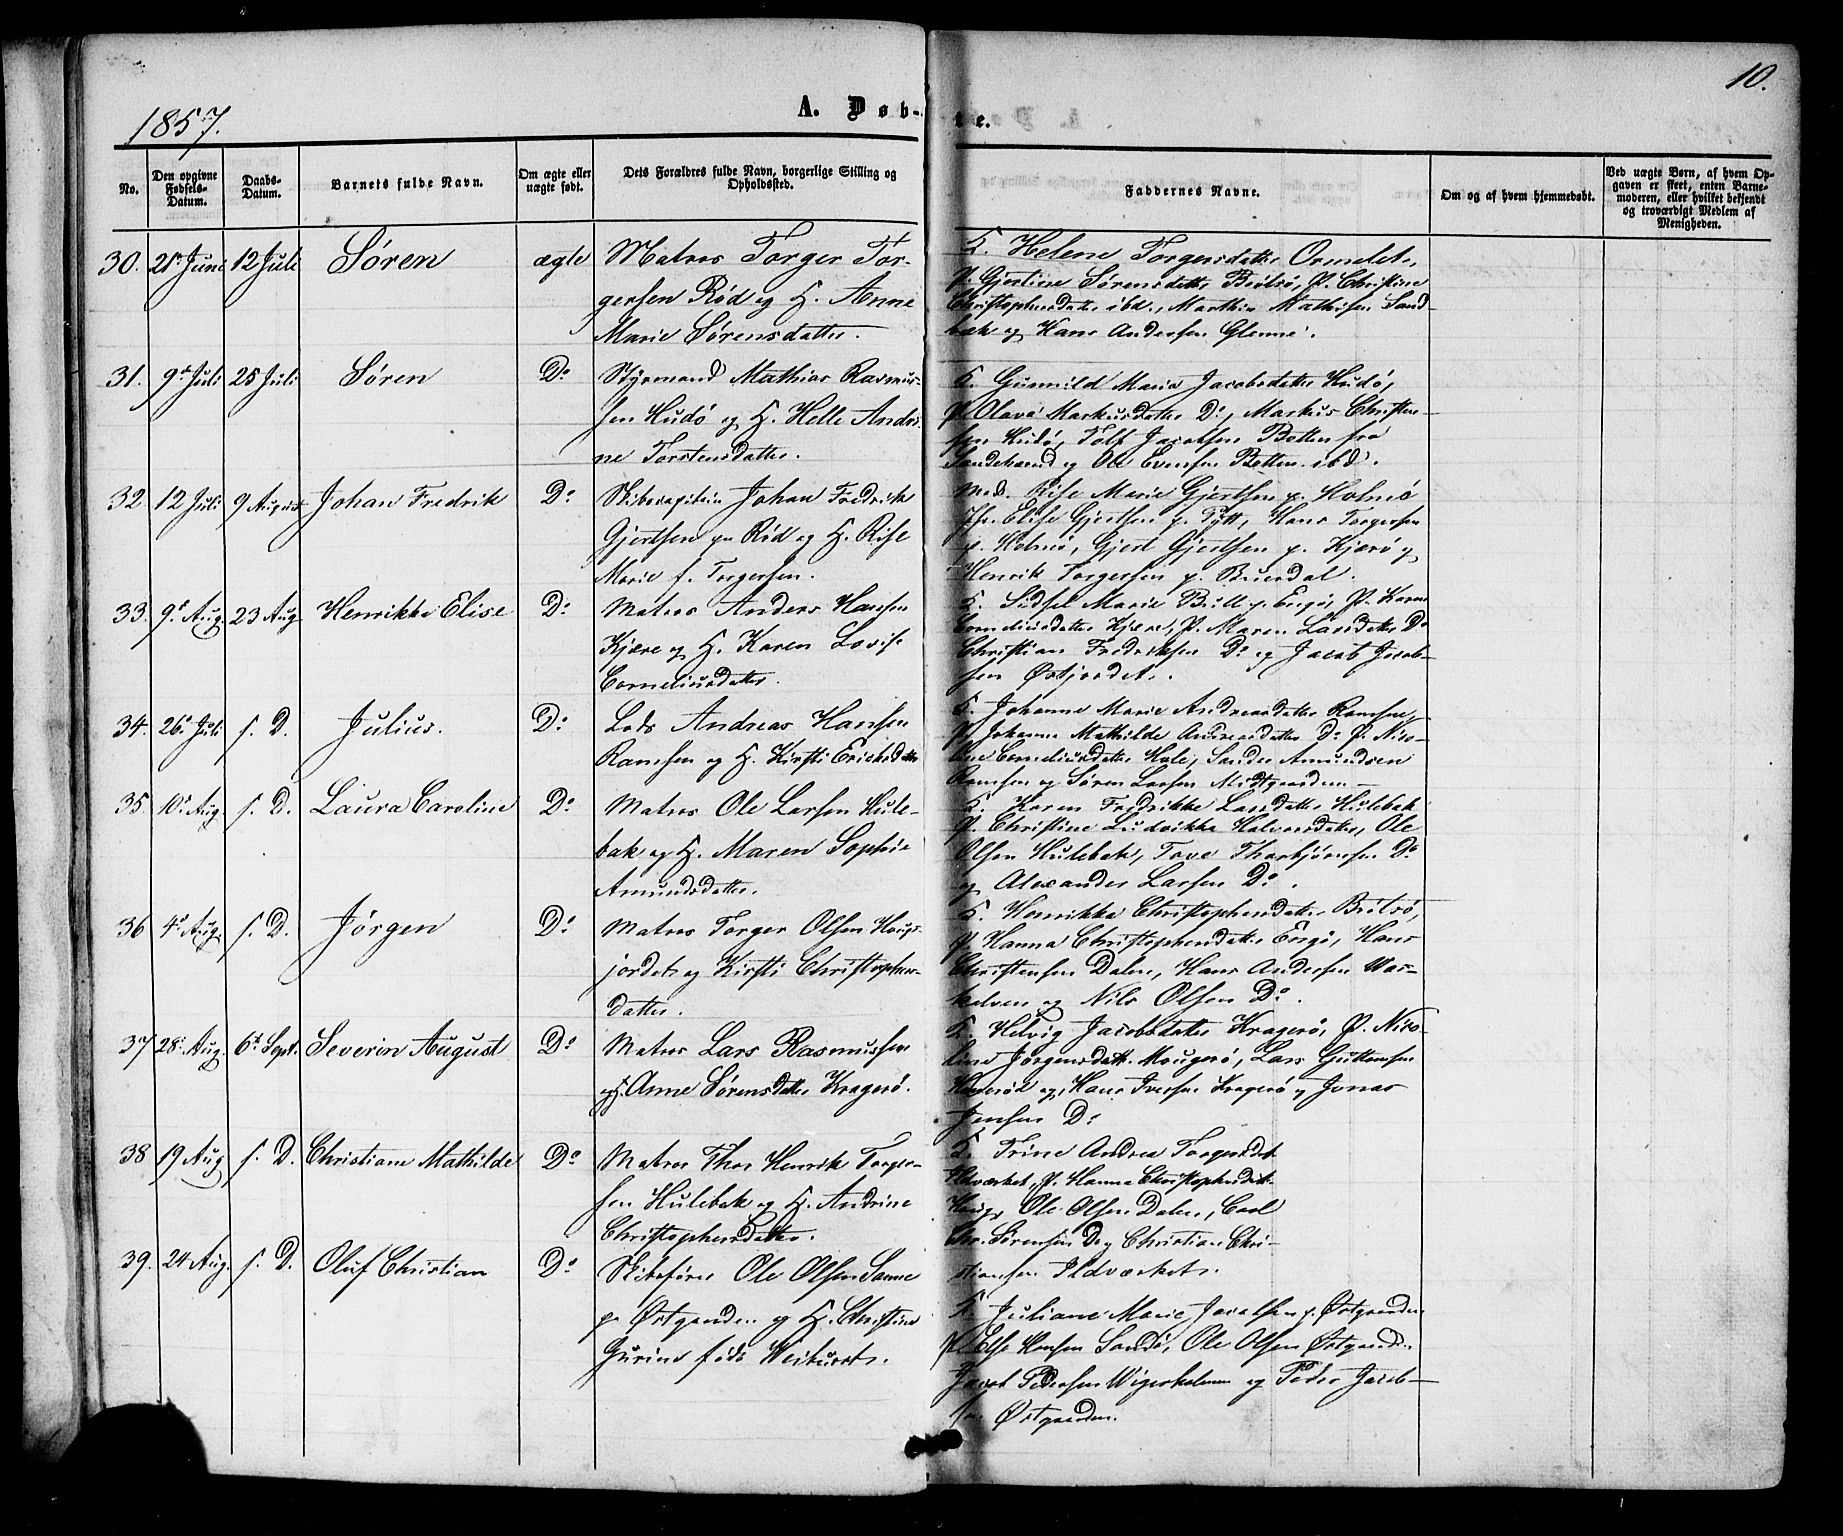 10.
1857.
A. Døb-
te.
No.
Den opgivne Fødsels-Datum.
Daabs-Datum.
Barnets fulde Navn.
Om ægte eller uægte født.
Dets Forældres fulde Navn, borgerlige Stilling og Opholdssted.
Faddernes Navne.
Om og af hvem hjemmedøbt.
Ved uægte Børn, af hvem Opgaven er skeet, enten Barnemoderen, eller hvilket bekjendt og troværdigt Medlem af Menigheden.
30. 21de Juni 12 Juli Søren ægte Matros Torger Tor-
gersen Rød og H. Anne
Marie Sørensdatter.
K. Helene Torgersdatter Ormelet,
P. Gjertine Sørensdatter Brøtsø, P. Christine
Christophersdatter ibd., Marthin Mathisen Sand-
bæk og Hans Andersen Glenne.
31. 9de Juli 25 Juli Søren Do Styrmand Mathias Rasmus-
sen Hudø og H. Helle Andri-
ne Torstensdatter.
K. Gunnild Marie Jacobsdatter Hudø,
P. Olava Markusdatter Do, Markus Christen-
sen Hudø, Tolf Jacobsen Botten fra
Sandehered og Ole Evensen Botten ibd.
32. 12 Juli 9 August Johan Fredrik Do Skibscapitain Johan Fredrik
Gjertsen paa Rød og H. Rise
Marie f. Torgersen.
Mad. Rise Marie Gjertsen p. Holmø
Jfr. Elise Gjertsen p. Tytt, Hans Torgersen
p. Holmø, Gjert Gjertsen p. Kjærø og
Henrik Torgersen p. Buerdal.
33. 9de Aug. 23 Aug. Henrikka Elise Do Matros Anders Hansen
Kjære og H. Karen Lovise
Corneliusdatter.
K. Sidsel Marie Bull p. Engø, P. Karen
Corneliusdatter Kjære, P. Maren Larsdatter Do
Christian Fredriksen Do og Jacob Jacob-
sen Østjordet.
34. 26de Juli s. D. Julius. Do Lods Andreas Hansen
Ramsen og H. Kirsti Ericksdatter
K. Johanne Marie Andreasdatter Ramsen,
P. Johanne Mathilde Andreasdatter Do P. Nico-
line Corneliusdatter Hole, Sander Amundsen
Ramsen og Søren Larsen Midtgaarden
35. 10de Aug s. D. Laura Caroline Do Matros Ole Larsen Hule-
bak og H. Maren Sophie
Amundsdatter.
K. Karen Fredrikke Larsdatter Hulebak
P. Christine Ludvikka Halvorsdatter, Ole
Olsen Hulebak, Tove Thorbjørnsen Do
og Alexander Larsen Do.
36 4de Aug. s. D. Jørgen Do Matros Torger Olsen Haugs-
jordet og Kirsti Christophers-
datter.
K. Henrikka Christophersdatter Brøtsø,
P. Hanna Christophersdatter Engø, Hans
Christensen Dalen, Hans Andersen Vas-
kalven og Nils Olsen Do.
37 28de Aug. 6te Sept. Severin August Do Matros Lars Rasmussen
og H. Anne Sørensdatter Kragerø.
K. Helvig Jacobsdatter Kragerø, P. Nico-
line Jørgensdatt. Mougerø, Lars Guttormsen
og Hans Iversen Kragerø og Jonas
Jensen Do
38 19 Aug s. D. Christiane Mathilde Do Matros Thor Henrik Torger-
sen Hulebak og H. Andrine
Christophersdatter.
K. Trine Andrea Torgersdat.
Ildværket, P. Hanna Christophersdat.
Haug, Ole Olsen Dalen, Carl
Chr. Sørensen Do og Christian Chri-
stiansen Ildværket.
39. 24 Aug. s. D. Oluf Christian Do Skibsfører Ole Olsen Sanne
p. Østgaarden og H. Christine
Gurine født Weiburst.
K. Juliane Marie Jacobsen p. Østgaarden
P. Else Hansen Sandø, Ole Olsen Østgaarden
Jacob Pedersen Wigerholmen og Peder Jacob-
sen Østgaarden.